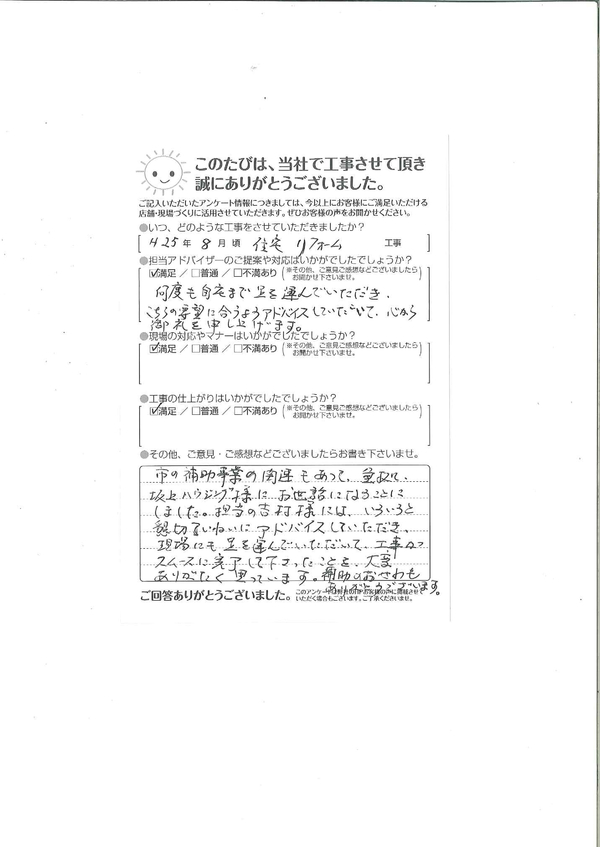 このたびは、当社で工事させて頂き
誠にありがとうございました。
ご記入いただいたアンケート情報につきましては、今以上にお客様にご満足いただける
店舗・現場づくりに活用させていただきます。ぜひお客様の声をお聞かせください。
●いつ、どのような工事をさせていただきましたか？
H25年 8月頃 住宅リフォーム 工事
●担当アドバイザーのご提案や対応はいかがでしたでしょうか？
☑満足／□普通／□不満あり（※その他、ご意見ご感想などございましたら
お聞かせ下さいませ。）
何度も自宅まで足を運んでいただき、
こちらの要望に合うようアドバイスしていただいて、心から
御礼を申し上げます。
●現場の対応やマナーはいかがでしたでしょうか？
☑満足／□普通／□不満あり（※その他、ご意見ご感想などございましたら
お聞かせ下さいませ。）
●工事の仕上がりはいかがでしたでしょうか？
☑満足／□普通／□不満あり（※その他、ご意見ご感想などございましたら
お聞かせ下さいませ。）
●その他、ご意見・ご感想などございましたらお書き下さいませ。
市の補助事業の関連もあって、急きょ、
坂上ハウジング様にお世話になることに
しました。担当の吉村様には、いろいろと
懇切ていねいにアドバイスしていただき、
現場にも足を運んでいただいて、工事が
スムースに完了して下さったことを、大変
ありがたく思っています。補助のおせわも
ありがとうございます。
ご回答ありがとうございました。
このアンケートは弊社のHPお客様の声に掲載させて
いただく場合もございます。ご了承くださいませ。